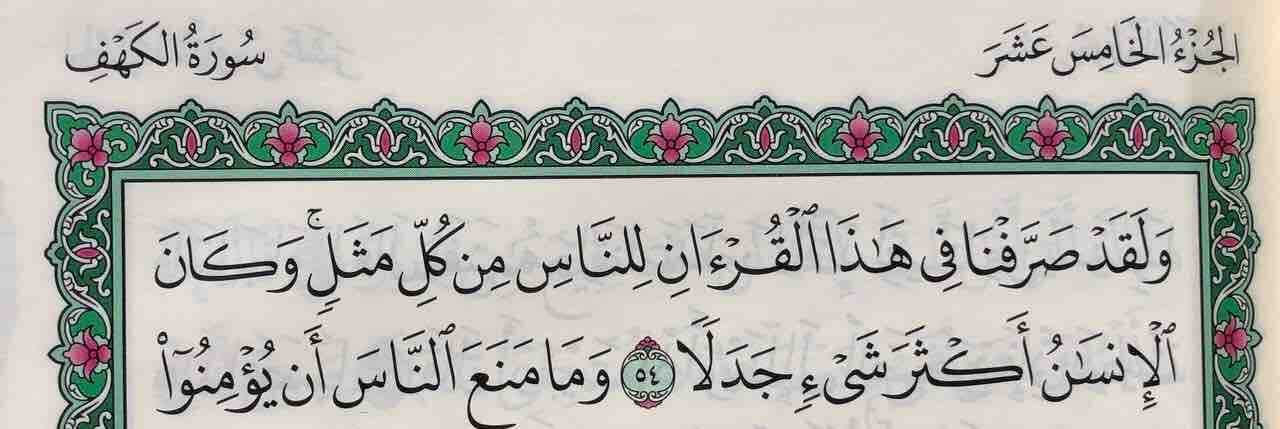 الجُزْءُ الخَامِسَ عَشَرَ
سُورَةُ الكَهْفِ
وَلَقَدْ صَرَّفْنَا فِى هَٰذَا ٱلْقُرْءَانِ لِلنَّاسِ مِن كُلِّ مَثَلٍۚ وَكَانَ
ٱلْإِنسَٰنُ أَكْثَرَ شَىْءٍ جَدَلًا ٥٤ وَمَا مَنَعَ ٱلنَّاسَ أَن يُؤْمِنُوٓا۟